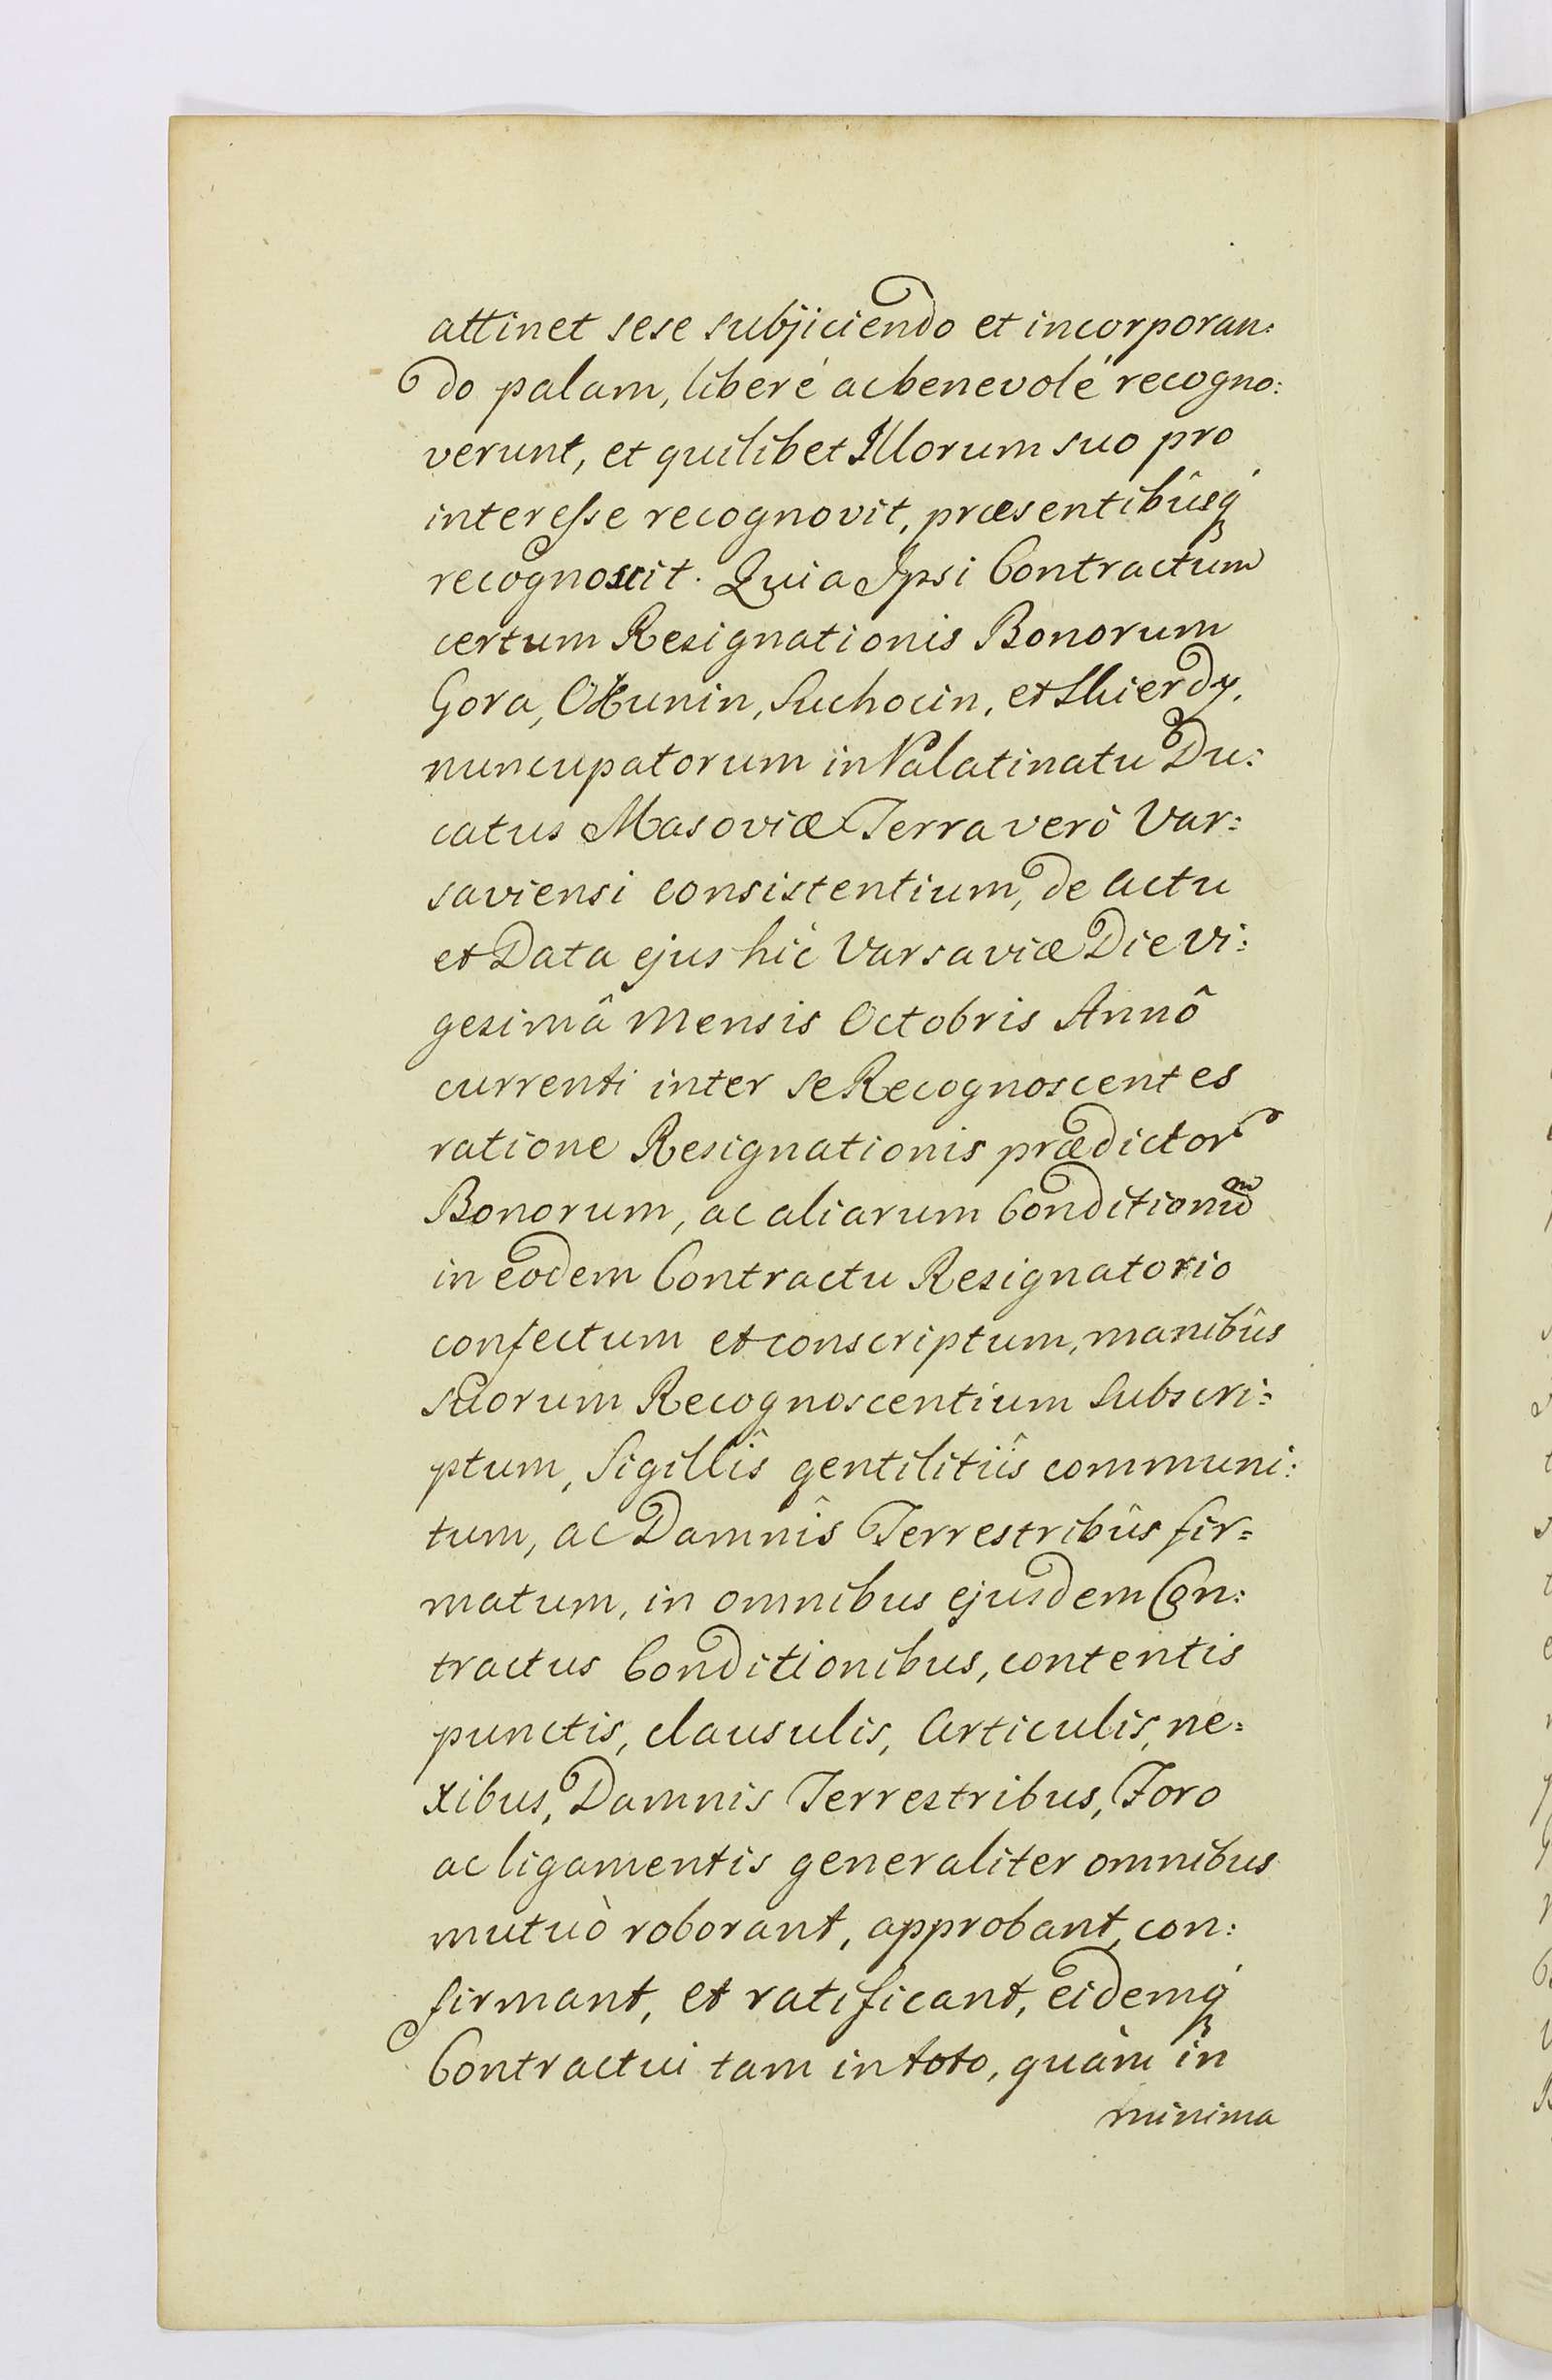 attinet sese subjiciendo et incorporan:
do palam, liberé ac benevolé recogno:
verunt, et quilibet Illorum suo pro
interesse recognovit, præsentibûsq́
recognoscit. Quia Ipsi Contractum
certum Resignationis Bonorum
Gora, Okunin, Suchocin, et Skierdy,
nuncupatorum in Palatinatu Du:
catus Masoviæ Terra verò Var:
saviensi consistentium, de actu
et Data ejus hic Varsaviæ Die vi:
gesimâ Mensis Octobris Annô
currenti inter se Recognoscentes
ratione Resignationis prædictor
Bonorum, ac aliarum Conditionũ
in eodem Contractu Resignatorio
confectum et conscriptum, manibûs
suorum Recognoscentium Subscri:
ptum, Sigillîs gentilitiîs communi:
tum, ac Damnîs Terrestribûs fir=
matum, in omnibus ejusdem Con:
tractus Conditionibus, contentis
punctis, clausulis, Articulis, ne=
xibus, Damnis Terrestribus, Foro
ac ligamentis generaliter omnibus
mutuò roborant, approbant, con:
firmant, et ratificant, eidemq́
Contractui tam in toto, quàm in
minima